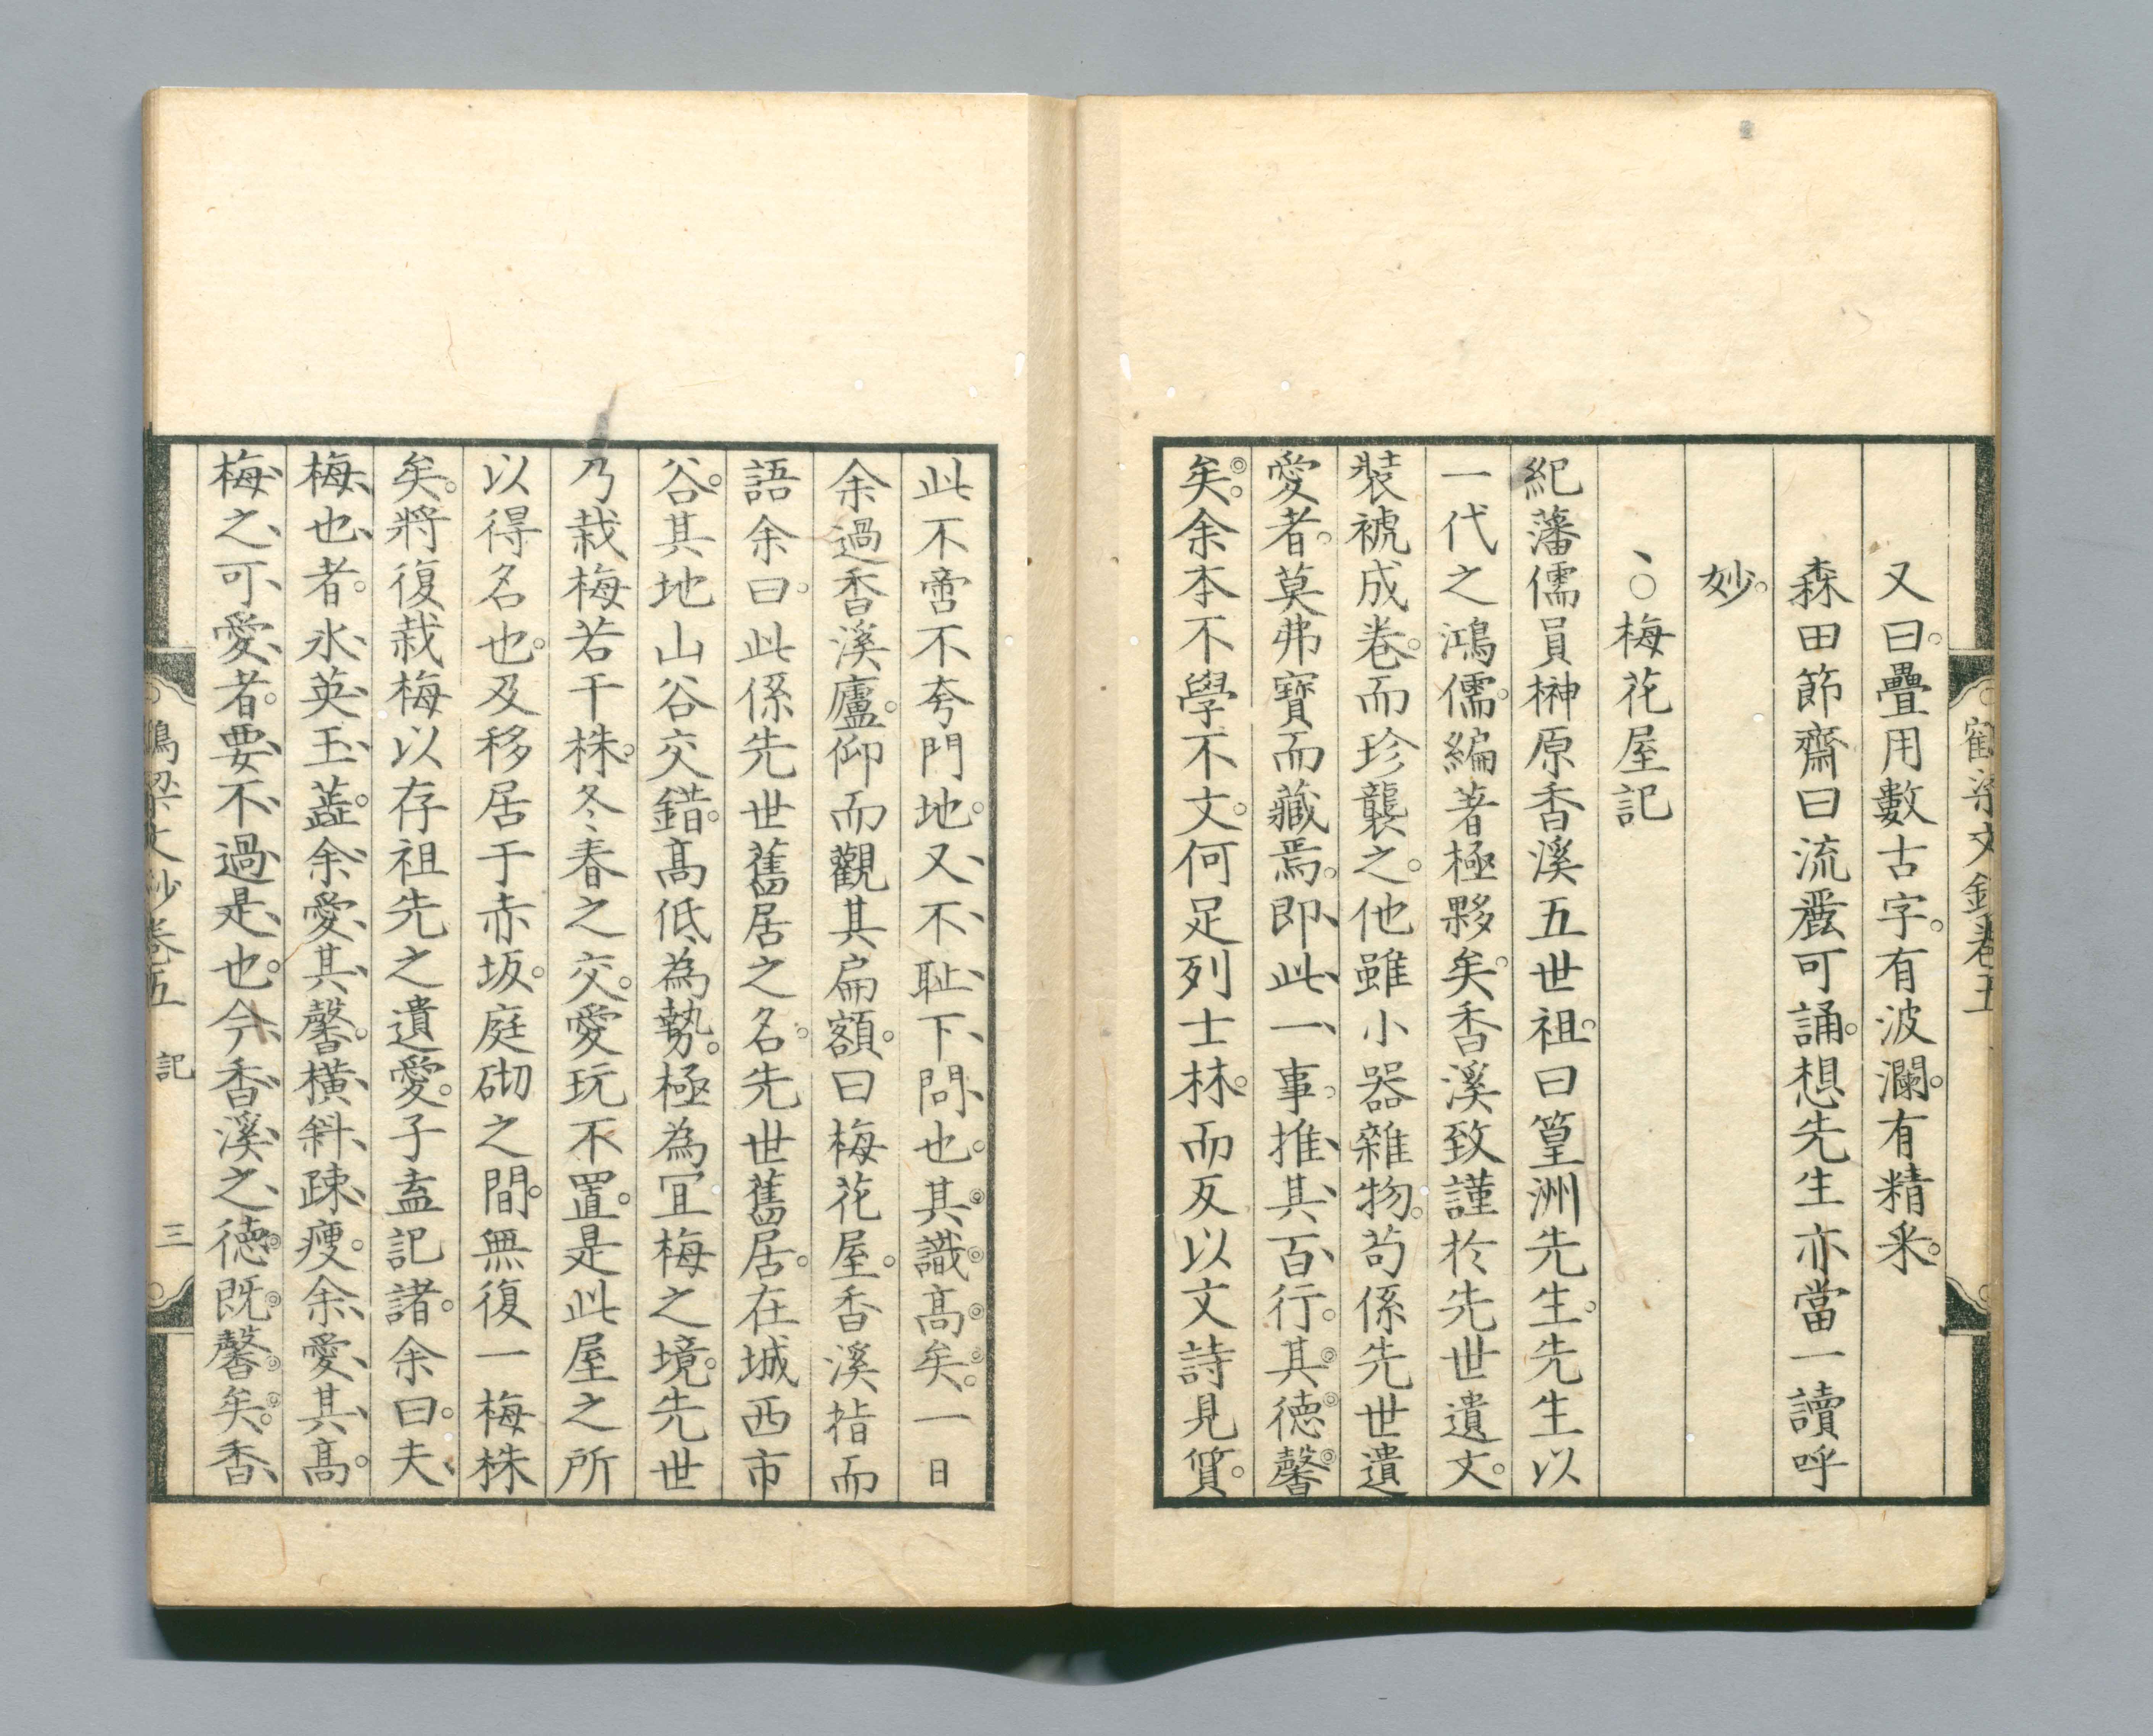 又曰。疊用數古字。有波瀾。有精采。
森田節齋曰流麗可誦。想先生亦當一讀呼
妙。
、○梅花屋記
紀藩儒員榊原香溪五世祖。曰篁洲先生。先生以
一代之鴻儒。編著極夥矣。香溪致謹於先世遺文。
裝褫成卷。而珍襲之。他雖小器雜物。苟係先世遺
愛者。莫弗寶而藏焉。即此一事。推其百行。其德馨
矣。余本不學不文。何足列士林。而反以文詩見質。
此不啻不夸門地。又不耻下問也。其識高矣。一日
余過香溪廬。仰而觀其扁額。曰梅花屋。香溪指而
語余曰。此係先世舊居之名。先世舊居。在城西市
谷。其地山谷交錯。高低為勢。極為宜梅之境。先世
乃栽梅若干株。冬春之交。愛玩不置。是此屋之所
以得名也。及移居于赤坂。庭砌之間。無復一梅株
矣。將復栽梅以存祖先之遺愛。子盍記諸。余曰。夫
梅也者。氷英玉蕋。余愛其馨。橫斜疎瘦。余愛其高。
梅之可愛者。要不過是也。今香溪之德既馨矣。香
鶴梁文鈔卷五 記 三